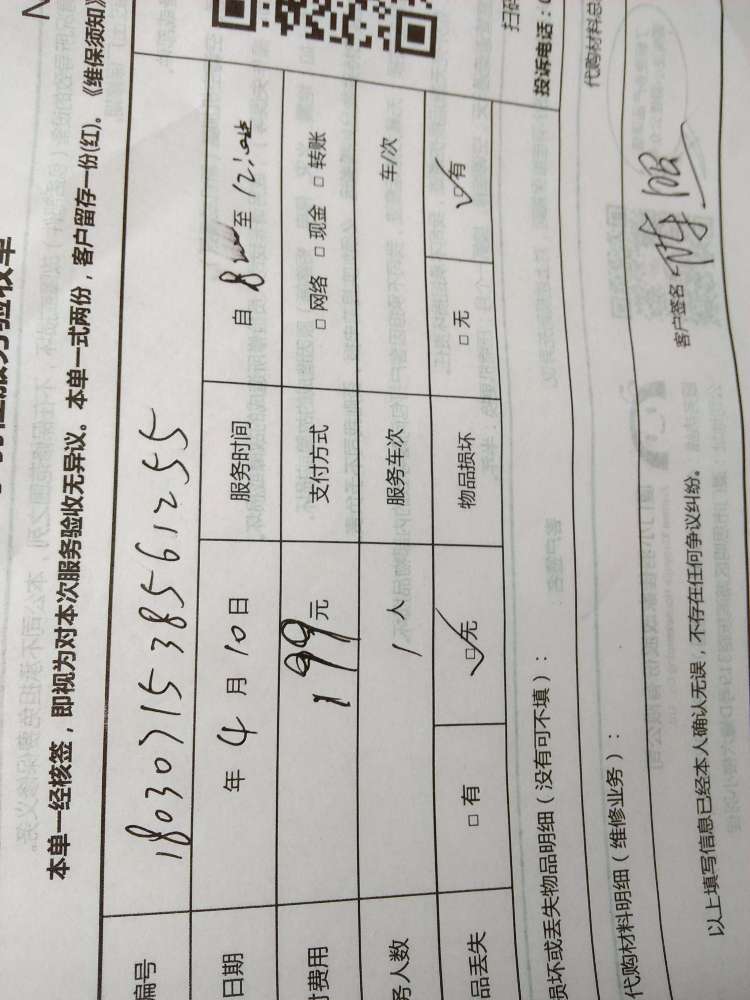 验收单
本单一经核签，即视为对本次服务验收无异议。本单一式两份，客户留存一份(红)。《维保须知》
编号 180307153856 1255
日期 年 4 月 10 日 服务时间 自 8 至 12:
费用 199 元 支付方式 □ 网络 □ 现金 □ 转账
务人数 1 人 服务车次 车/次
品丢失 □ 有 □ 无 物品损坏 □ 无 □ 有
扫码
投诉电话：0
损坏或丢失物品明细（没有可不填）：
代购材料明细（维修业务）：
代购材料总
以上填写信息已经本人确认无误，不存在任何争议纠纷。
客户签名